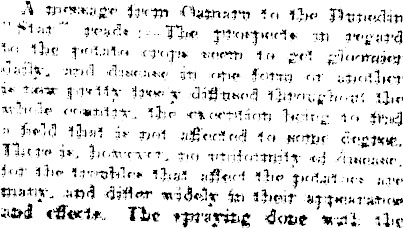 A message from Oamaru to the Dunedin
"Star" reads :—The prospects in regard
to the potato crops seem to get gloomier
daily, and disease in one form or another
is now pretty freely diffused throughout the
whole country, the exception being to find
a field that is not affected to some degree.
There is, however, no uniformity of disease,
for the troubles that affect the potatoes are
many, and differ widely in their appearance
and effects. The spraying done with the